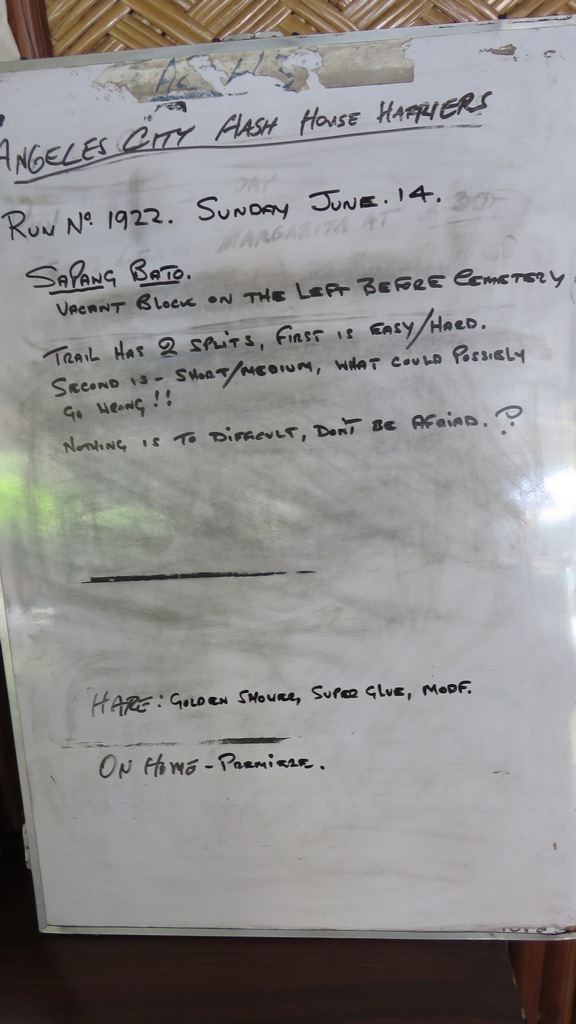 ANGELES CITY HASH HOUSE HARRIERS
RUN Nº 1922. SUNDAY JUNE. 14.
MARGARITA AT
SAPANG BATO.
VACANT BLOCK ON THE LEFT BEFORE CEMETERY
TRAIL HAS 2 SPLITS, FIRST IS EASY/HARD.
SECOND IS - SHORT/MEDIUM, WHAT COULD POSSIBLY
GO WRONG!!
NOTHING IS TO DIFFICULT, DON'T BE AFRIAD.?
HARE: GOLDEN SHOWER, SUPER GLUE, MODF.
ON HOME - PREMIERE.